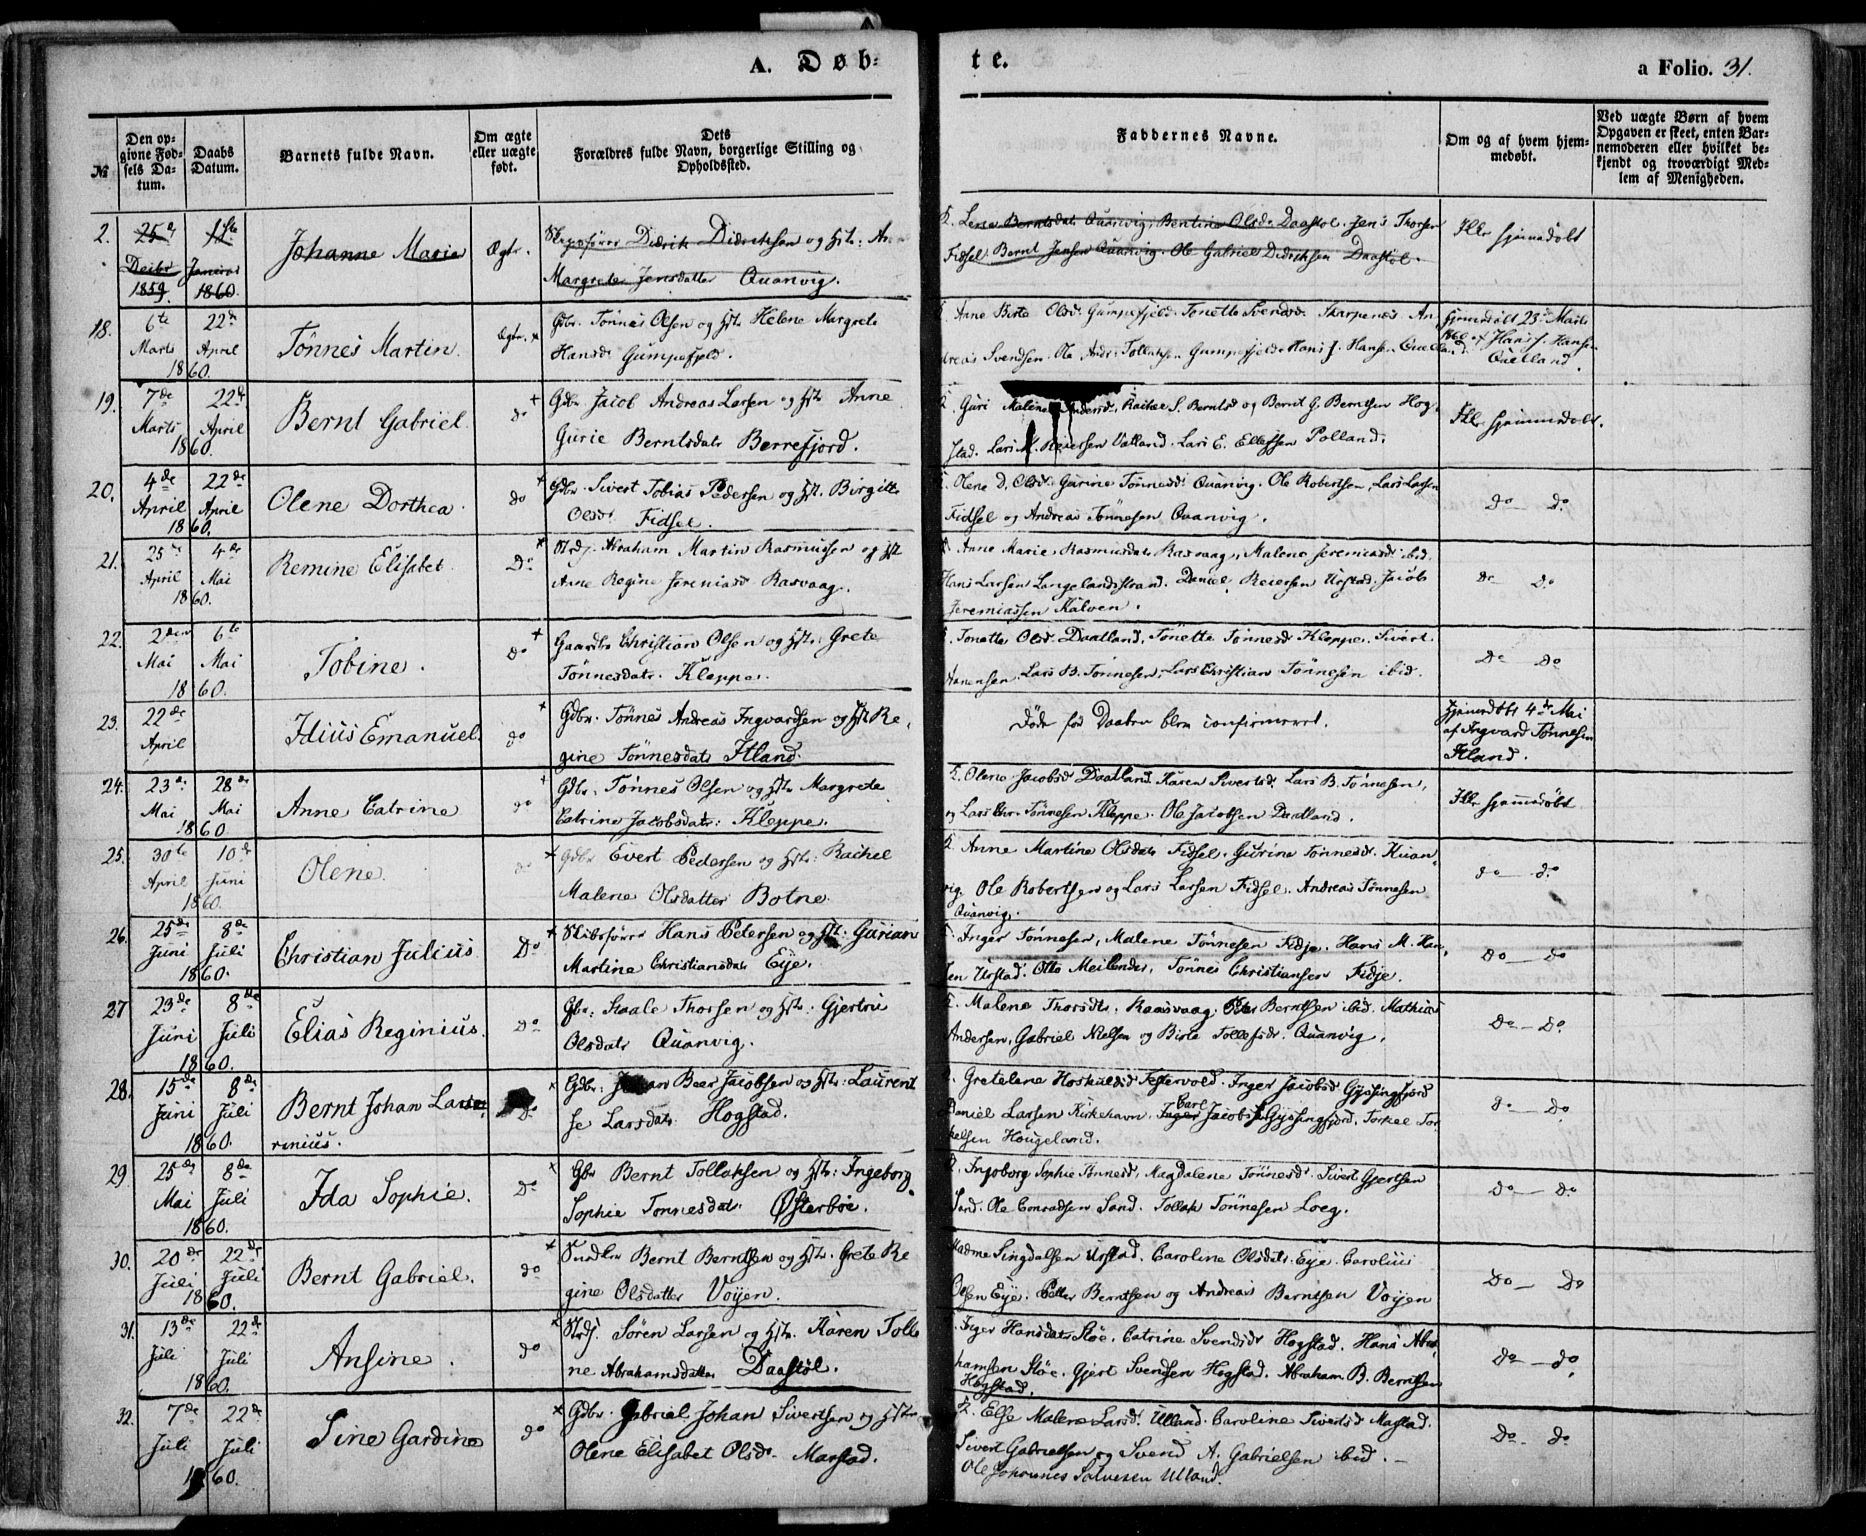 A. Døb=
te.
a Folio. 31.
№
Den op=
givne Fød=
sels Da=
tum.
Daabs
Datum.
Barnets fulde Navn.
Om ægte
eller uægte
født.
Dets
Forældres fulde Navn, borgerlige Stilling og
Opholdssted.
Faddernes Navne.
Om og af hvem hjem=
medøbt.
Ved uægte Børn af hvem
Opgaven er skeet, enten Bar=
nemoderen eller hvilket be=
kjendt og troværdigt Med=
lem af Menigheden.
2.
25de
Decbr
1859.
1ste
Januar
1860.
Johanne Marie
Ægte.
Skipsfører Didrik Didriksen og Hst: An
Margrete Jensdatter Quanvig.
F. Lene Berntsdatr Quanvig, Bentine Olsdr Daastøl. Jens Thorsen
Fidsel. Bernt Jensen Quanvig. Ole Gabriel Didriksen Daastøl.
Ikke hjemdøbt
18.
6te
Marts
22de
April
1860.
Tönnes Martin.
Ægte.
Gdbr. Tönnes Olsen og Hst. Helene Margrete
Hansdr Gumpefjeld.
F. Anne Birte Olsdr Gumpefjeld. Tonette Svendsdr Skarpenes. An
dreas Svendsen. Ole Andr. Tollaksen Gumpefjeld. Hans J. Hansen Quelland.
Hjemmedøbt 23de Marts
1860 af Hans J. Hansen
Quelland.
19.
7de
Marts
22de
April
1860.
Bernt Gabriel.
do
Gdbr. Jacob Andreas Larsen og Hst. Anne
Gurie Berntsdatr Berrefjord.
F. Guri Malene Rakel S. Berntsd og Bernt G. Berntsen Hog=
stad. Lars M. Reiersen Vatland. Lars E. Ellefsen Polland.
Ikke hjemmedøbt.
20.
4de
April
22de
April
1860.
Olene Dorthea.
do
Gdbr. Sivert Tobias Pedersen og Hst. Birgitte
Olsdr Fidsel.
F. Olene D. Olsdr Gurine Tønnesdr Quanvig. Ole Robertsen, Lars Larsen
Fidsel og Andreas Tönnesen Quanvig.
Do Do
21.
25de
April
4de
Mai
1860.
Remine Elisabet.
Do
Abraham Martin Rasmussen og Hst
Ane Regine Jeremiasd Rasvaag.
F. Anne Marie Rasmusdatr Rasvaag, Malene Jeremiasdr ibid.
Hans Larsen Langelandsstrand. Daniel Reiersen Urstad. Jacob
Jeremiassen Kalven.
Do Do
22.
2den
Mai
6te
Mai
1860.
Tobine.
Do
Gaardbr Christian Olsen og Hst: Grete
Tönnesdatr. Kleppe.
F. Tonette Olsd. Daatland. Tönette Tönnesd Kleppe. Sivert
Hanensen. Lars B. Tönnesen. Lars Christian Tönnesen ibid.
Do Do
23.
22de
April
Idius Emanuel.
do
Gdbr. Tönnes Andreas Ingvardsen og Hst Re=
gine Tönnesdatr Itland.
Døde før Daaben blev confirmeret.
Hjemmedøbt 4de Mai
af Ingvard Tönnesen
Itland.
24.
23de
Mai
28de
Mai
1860.
Anne Catrine
do
Gdbr. Tönnes Olsen og Hst Margrete
Catrine Jacobsdatr: Kleppe.
F. Olene Jacobsd Daatland. Karen Sivertsd. Lars B. Tönnesen,
og Lars Chr. Tönnesen Kleppe. Ole Jacobsen Daatland.
Ikke hjemmedøbt
25.
30te
April
10de
Juni
1860.
Olene.
do
Gdbr Evert Pedersen og Hst: Rachel
Malene Olsdatter Botne.
F. Anne Martine Olsdatr Fidsel. Gurine Tönnesdt. Kuan=
vig. Ole Robertsen og Lars Larsen Fidsel. Andreas Tönnesen
Quanvig.
do do
26.
25de
Juni
8de
Juli
1860.
Christian Julius
Do
Skibsfører Hans Petersen og Hst: Gurian
Martine Christiansdatr Eije.
F. Inger Tönnesen, Malene Tönnesen Fidje. Hans M. Han=
sen Urstad. Otto Meilender. Tönnes Christiansen Fidje.
Do Do
27
23de
Juni
8de
Juli
1860.
Elias Reginius.
Do
Gbr: Staale Thorsen og Hst: Gjertru
Olsdatr Quanvig.
F. Malene Thorsdt. Raasvaag. Peder Berntsen ibid. Mathias
Andersen, Gabriel Nielsen og Birte Tollefsdr. Quanvig.
Do Do
28.
15de
Juni
8de
Juli
1860.
Bernt Johan Lau
renius.
Do
Gdbr: Johan Beer Jacobsen og Hst: Laurent
se Larsdatr. Hogstad.
F. Gretelene Hoskuldsd Festervold. Inger Jacobsd Gysingfjord
Daniel Larsen Kirkehavn. Inger Carl Jacobs Gysingfjord. Torkel Tor
kelsen Hougeland.
do Do
29
25de
Mai
8de
Juli
1860.
Ida Sophie.
Do
Gbr Bernt Tollaksen og Hst: Ingeborg
Sophie Tonnesdatr. Østerbøe.
F. Ingeborg Sophie Annesd. Magdalene Tönnesd. Sivert Gjertsen
Sand. Ole Conradsen Sand. Tollak Tönnesen Loeg.
Do Do
30.
20de
Juli
22de
Juli
1860.
Bernt Gabriel.
do
Bernt Berntsen og Hst: Grete Re
gine Olsdatter Voijen.
Madme Singdalsen Urstad. Caroline Olsdatr. Eije. Carolius
Olsen Eije. Petter Berntsen og Andreas Berntsen Voijen
Do Do
31.
13de
Juli
22de
Juli
1860.
Ansine.
do
Sören Larsen og Hst. Karen Tolle
ne Abrahamsdatter Daastøl.
F. Inger Hansdatr Støe. Catrine Svendsdr Hogstad. Hans Abra
hamsen Støe. Gjert Svendsen Hogstad. Abraham B. Berntsen
Hogstad.
Do do
32.
7de
Juli
22de
Juli
1860.
Sine Gardine
do
Gdbr. Gabriel Johan Sivertsen og Hst
Olene Elisabet Olsdr. Marstad.
F. Else Malene Larsd. Ulland. Caroline Sivertsd Mastad.
Sivert Gabrielsen og Svend A. Gabrielsen ibid.
Ole Johannes Salvesen Ulland.
Do do